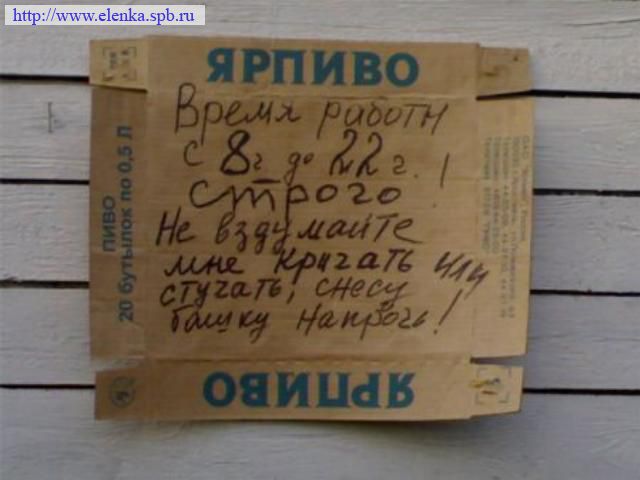 http://www.elenka.spb.ru
ЯРПИВО
Время работы
с 8г. до 22г.!
строго
Не вздумайте
мне кричать или
стучать, снесу
башку напрочь!
ПИВО
20 бутылок по 0,5 Л
ЯРПИВО